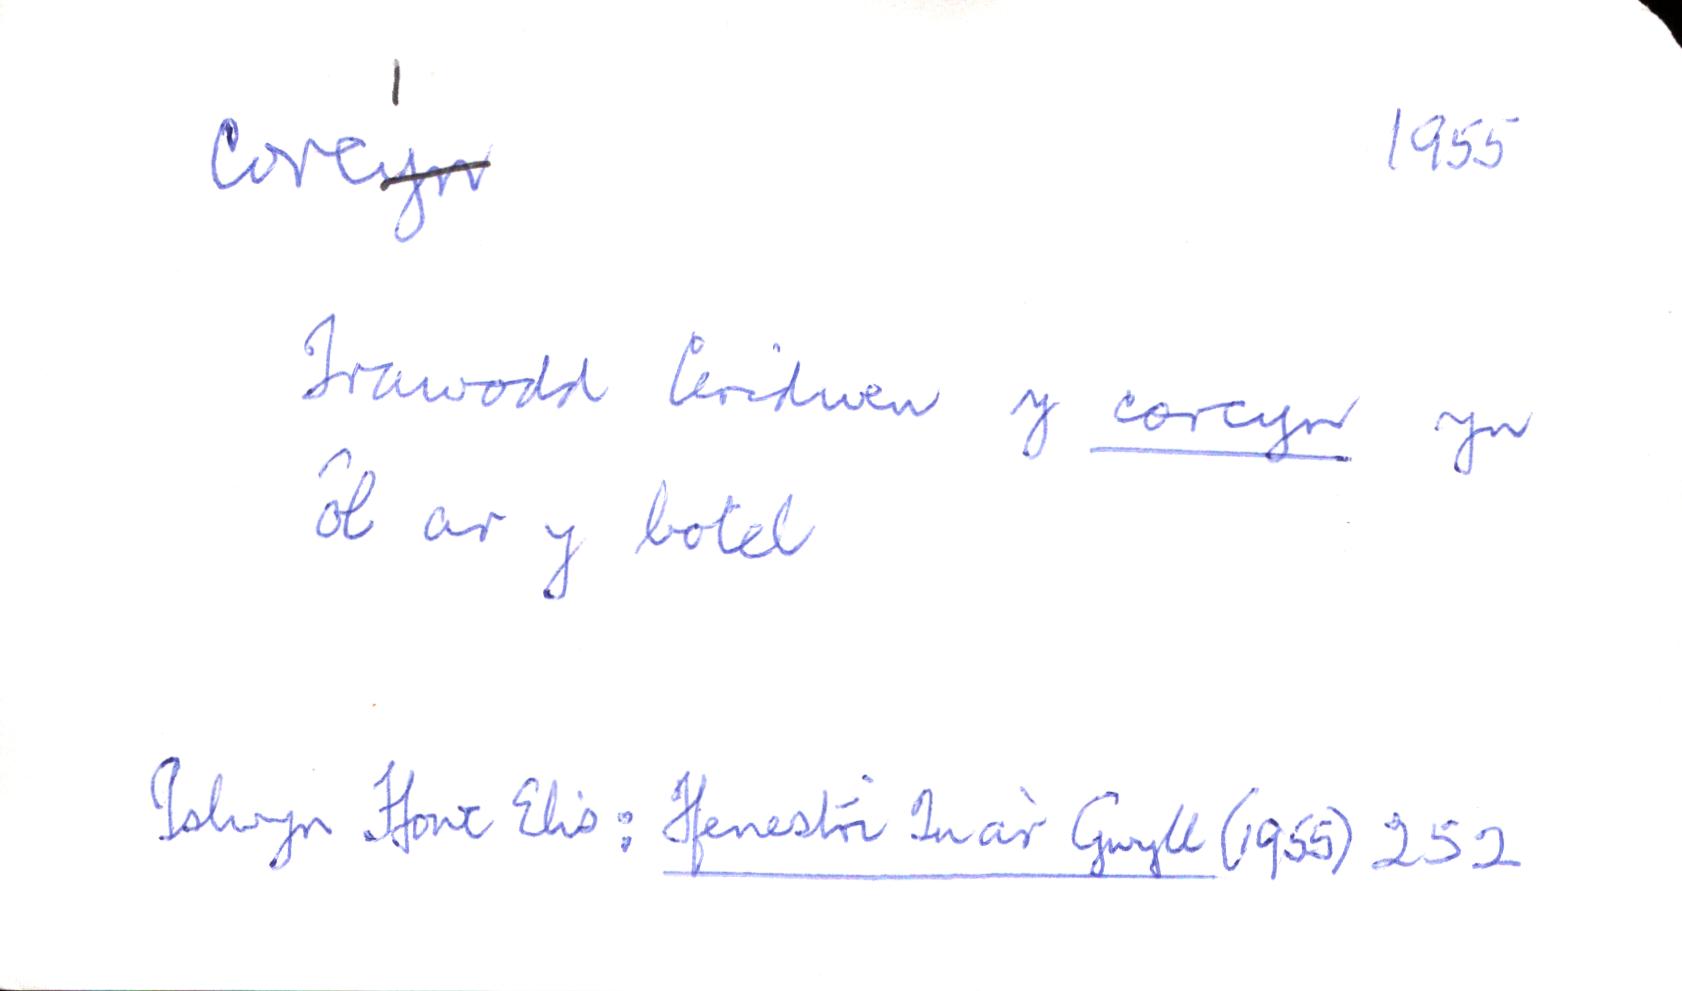 1
corcyn 1955
Trawodd Ceridwen y corcyn yn
ôl ar y botel
Islwyn Ffowc Elis: Ffenestri Tua'r Gwyll (1955) 252